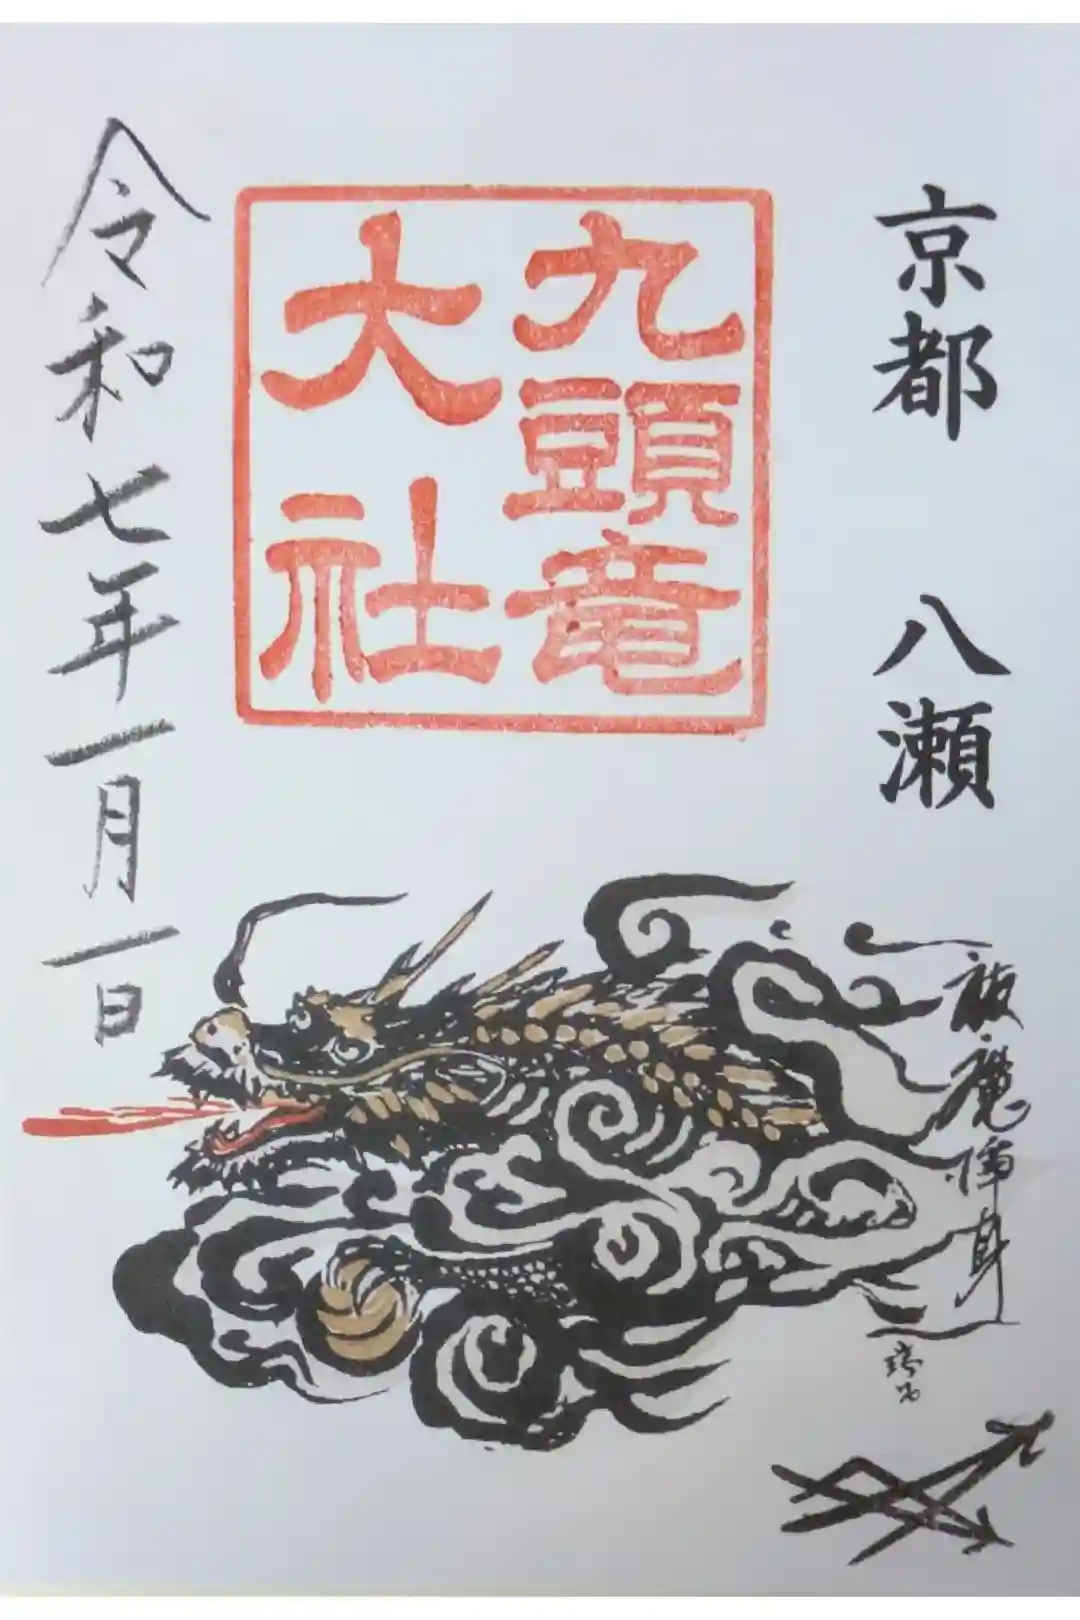 京都 八瀬
九頭竜
大社
令和七年一月一日